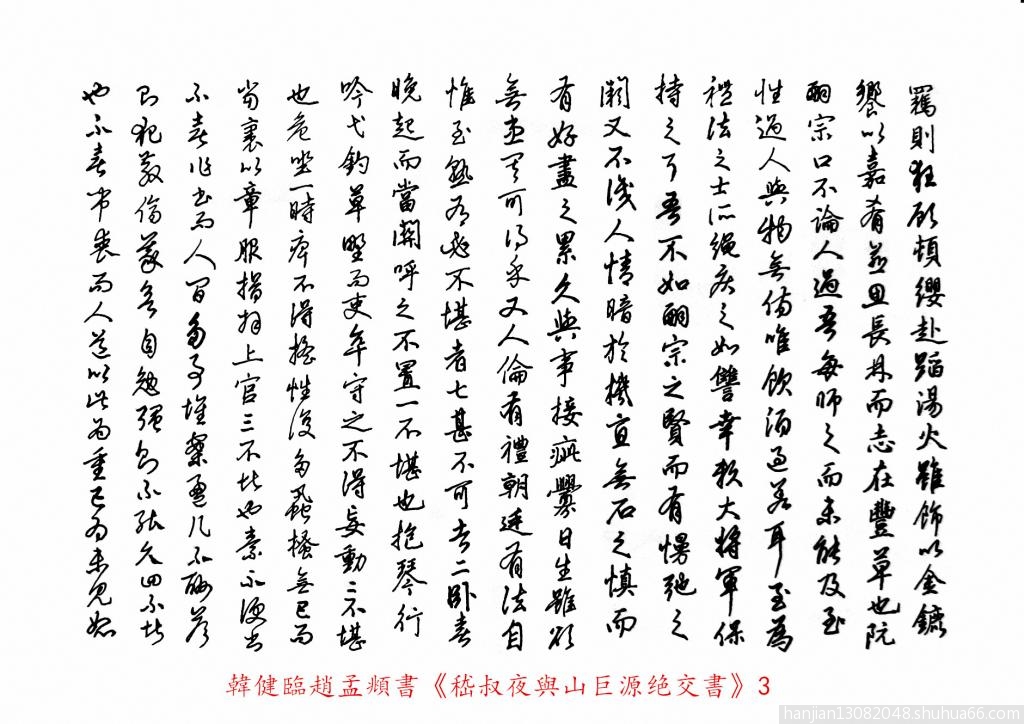 羈則狂顧頓纓赴蹈湯火雖飾以金鑣
饗以嘉肴逾思長林而志在豐草也阮
嗣宗口不論人過吾每師之而未能及至
性過人與物無傷唯飲酒過差耳至為
禮法之士所繩疾之如讎幸賴大將軍保
持之耳吾不如嗣宗之賢而有慢弛之
闕又不識人情暗於機宜無石之慎而
有好盡之累久與事接疵釁日生雖欲
無患其可得乎又人倫有禮朝廷有法自
惟至熟有必不堪者七甚不可者二卧喜
晚起而當關呼之不置一不堪也抱琴行
吟弋釣草野而吏卒守之不得妄動二不堪
也危坐一時痹不得搖性復多蝨搔無已而
當裹以章服揖拜上官三不堪也素不便書
不喜作書而人間多事堆案盈几不酬答
則犯教傷義欲自勉強則不能久四不堪
也不喜弔喪而人道以此為重已為未見恕
韓健臨趙孟頫書《嵇叔夜與山巨源绝交書》3
hanjian13082048.shuhua66.com